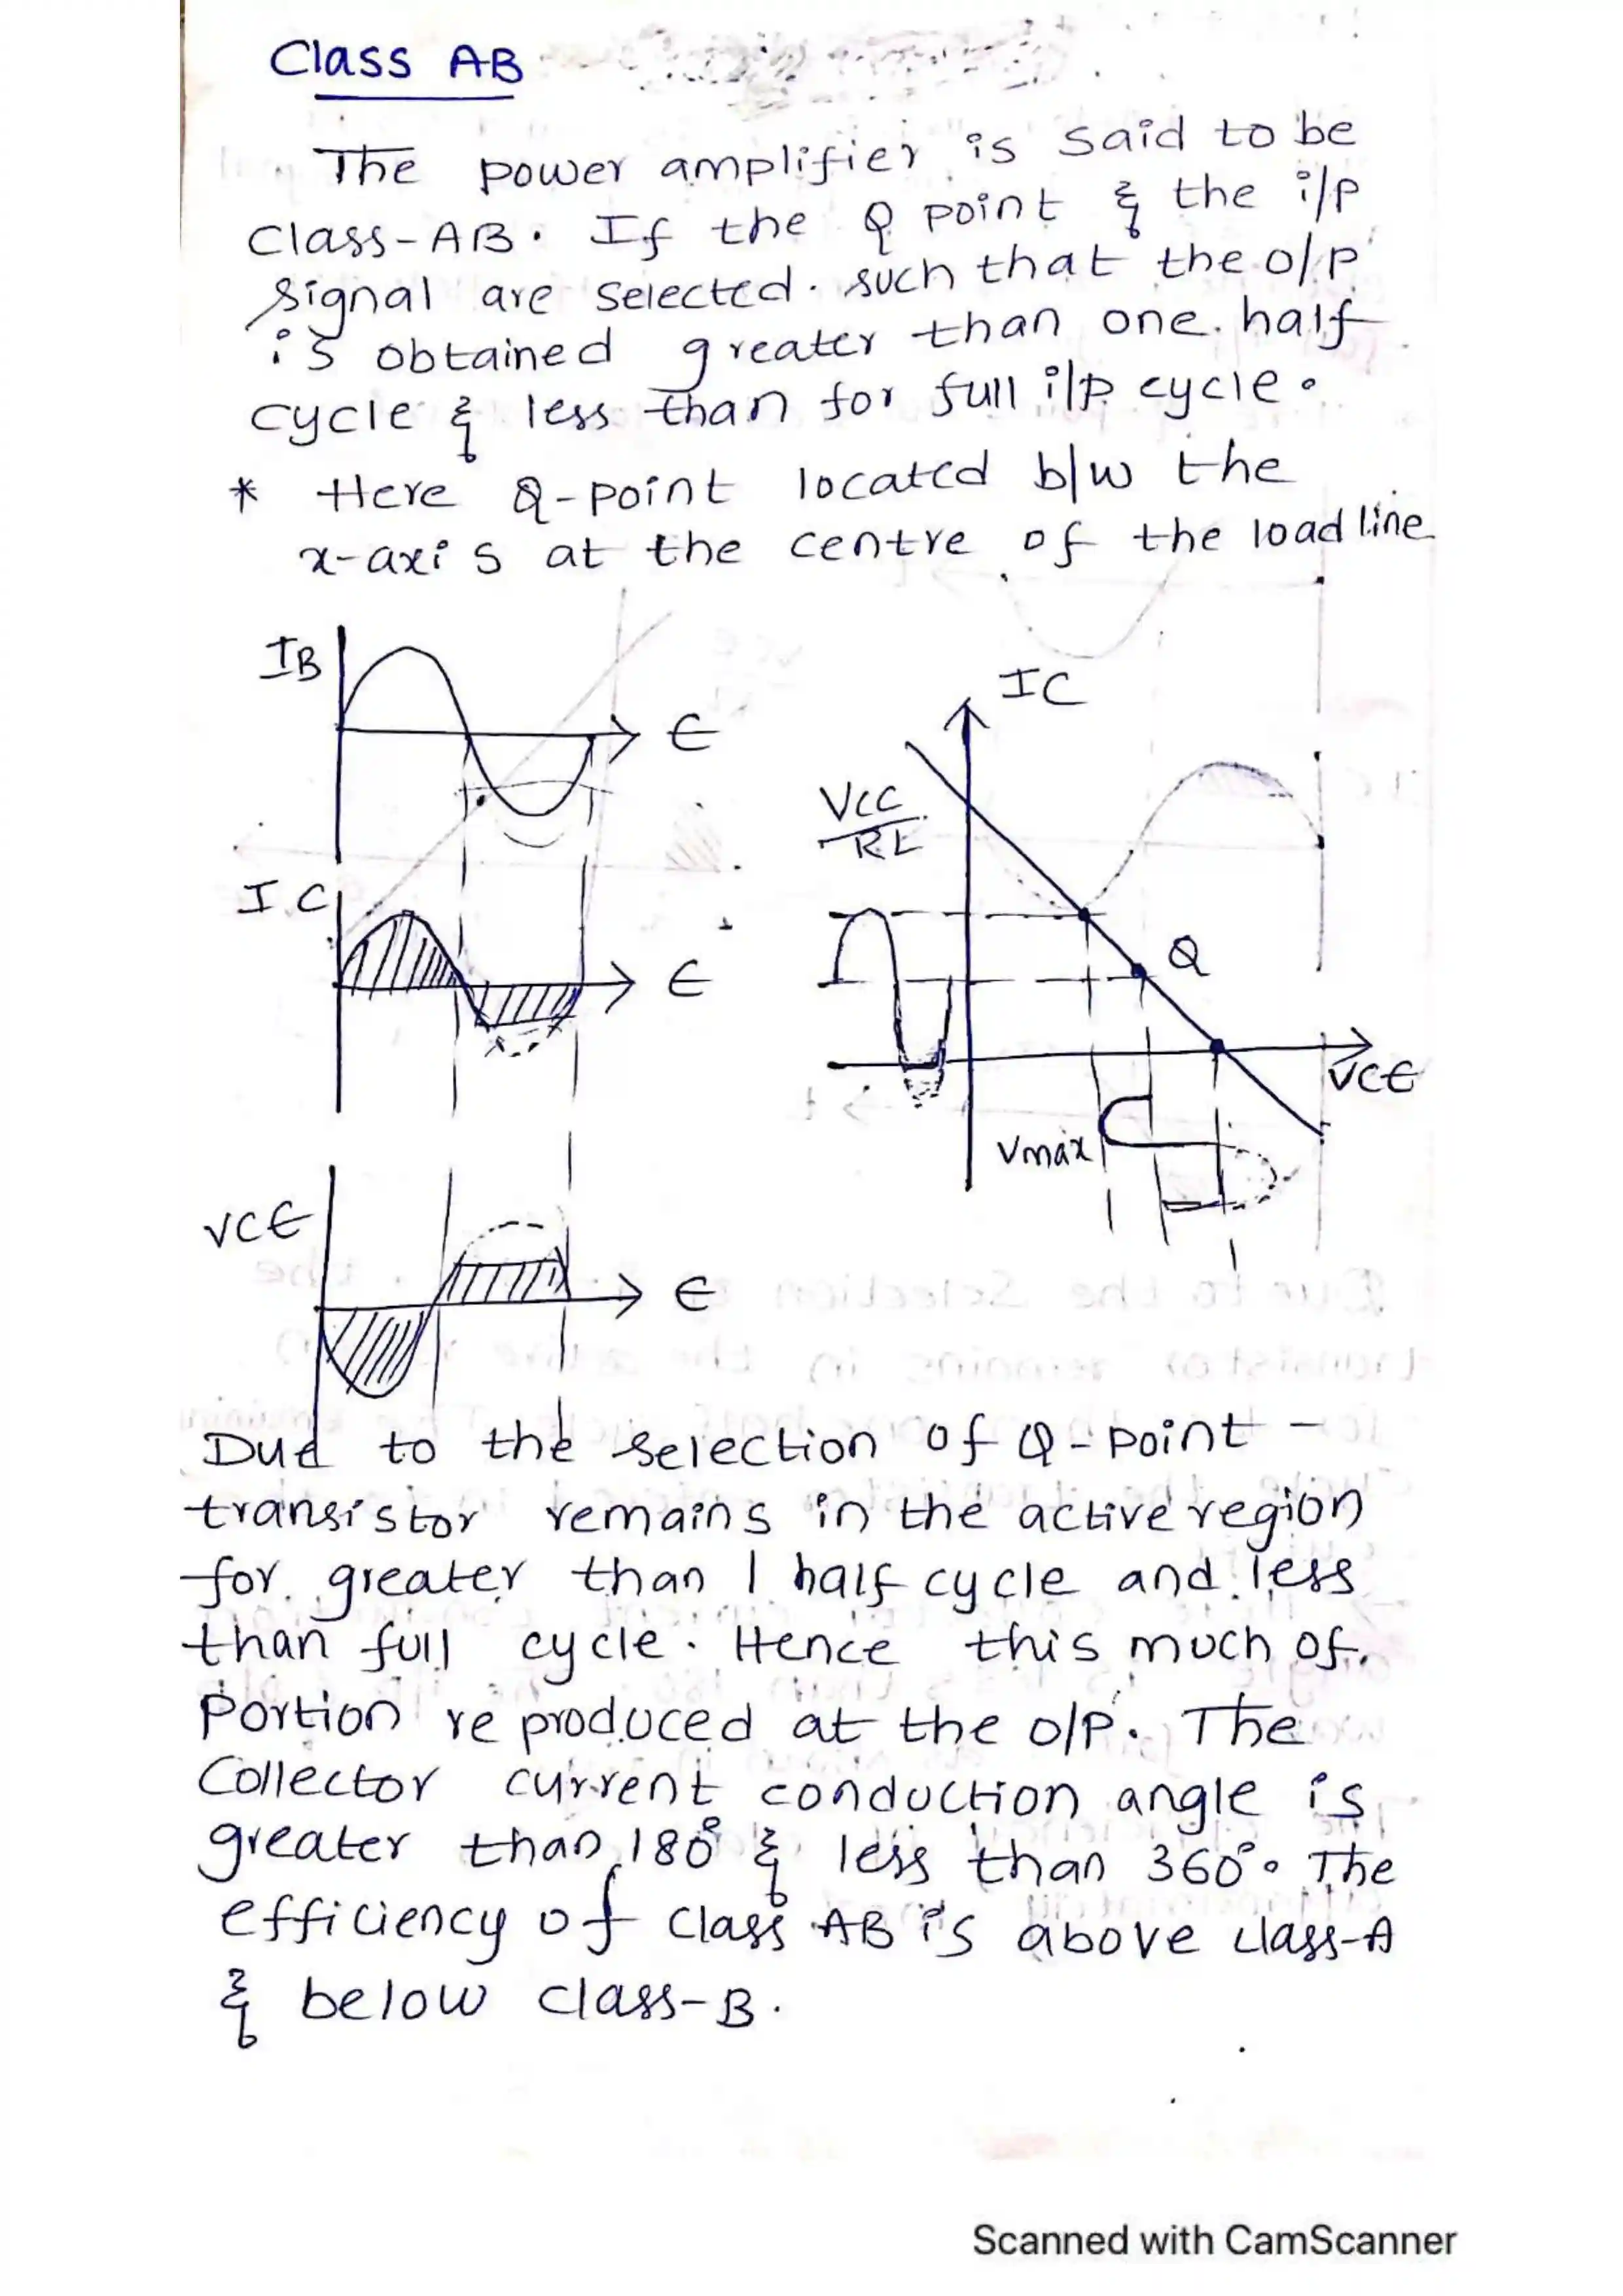 Class AB
The power amplifier is said to be
class-AB. If the Q point & the i/p
signal are selected. such that the o/p
is obtained greater than one. half
cycle & less than for full i/p cycle.
* Here Q-point located b/w the
x-axis at the centre of the load line
IB
t
IC
VCC
RL
IC
t
Q
VCE
Vmax
VCE
t
Due to the selection of Q-point -
transistor remains in the active region
for. greater than 1 half cycle and less
than full cycle. Hence this much of.
Portion reproduced at the o/p. The
Collector current conduction angle is
greater than 180° & less than 360°. The
efficiency of class AB is above class-A
& below class-B.
Scanned with CamScanner